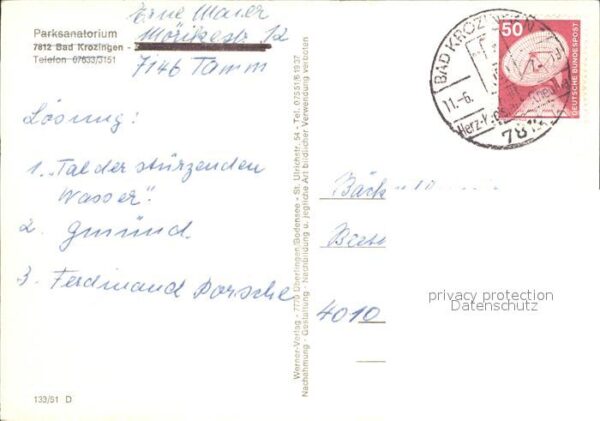 Erne Maier
Parksanatorium
Mörikestr. 12
7812 Bad Krozingen -
Telefon 07633/3151
7146 Tamm
Lösung:
1. "Tal der stürzenden
Wasser".
2. Gmünd
3. Ferdinand Porsche
133/51 D
Werner-Verlag - 7770 Überlingen/Bodensee - St. Ulrichstr. 54 - Tel. 07551/61937
Nachahmung - Gestaltung - Nachbildung u. jegliche Art bildlicher Verwendung verboten
BAD KROZINGEN
11.-6.
Herz-
7812
50
DEUTSCHE BUNDESPOST
4010
privacy protection
Datenschutz